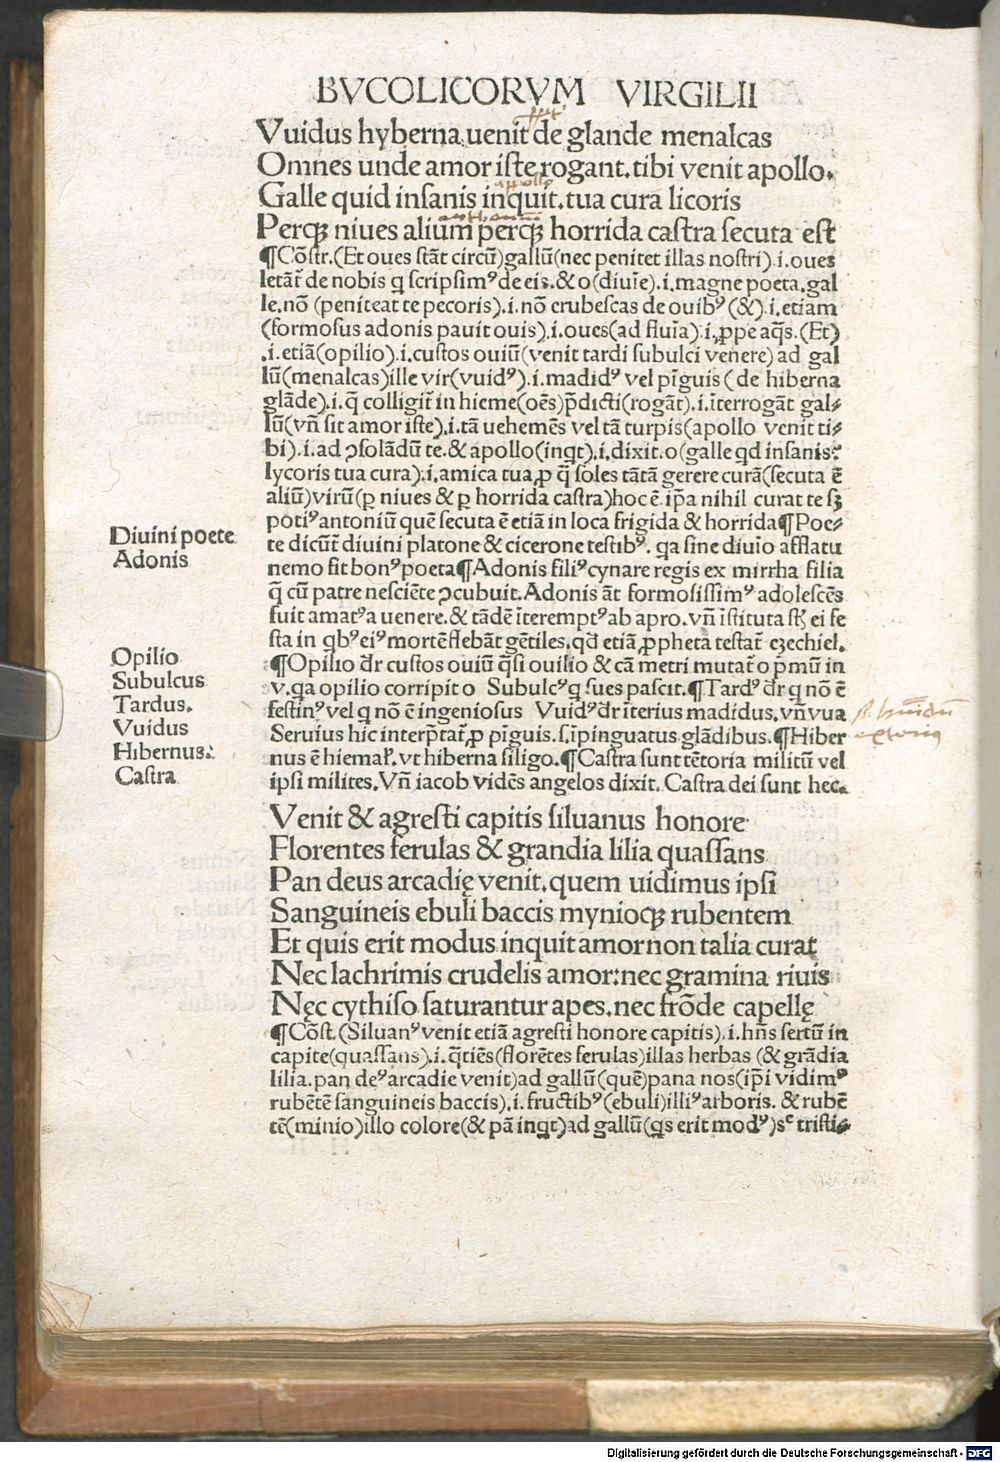 BVCOLICORVM VIRGILII
Vuidus hyberna uenit de glande menalcas
Omnes unde amor iste rogant. tibi venit apollo.
Galle quid insanis inquit. tua cura licoris
Perqꝫ niues alium perqꝫ horrida castra secuta est
¶Cõstr. (Et oues stãt circũ) gallũ (nec penitet illas nostri) .i. oues
letãt᷑ de nobis q scripsimꝰ de eis. & o (diuĩe) .i. magne poeta. gal
le. nõ (peniteat te pecoris) .i. nõ erubescas de ouibꝰ (&) .i. etiam
(formosus adonis pauit ouis) .i. oues (ad fluĩa) .i. ꝓpe aq̃s. (Et)
.i. etiã (opilio) .i. custos ouiũ (venit tardi subulci venere) ad gal
lũ (menalcas) ille vir (vuidꝰ) .i. madidꝰ vel pĩguis (de hiberna
glãde) .i. q̃ colligit᷑ in hieme (oẽs) p̃dicti (rogãt) .i. ĩterrogãt gal⸗
lũ (vñ sit amor iste) .i. tã uehemẽs vel tã turpis (apollo venit ti⸗
bi) .i. ad ꝯsolãdũ te. & apollo (inqt) .i. dixit. o (galle qd insanis?
lycoris tua cura) .i. amica tua, ꝓ q̃ soles tãtã gerere curã (secuta ẽ
aliũ) virũ (ꝑ niues & ꝑ horrida castra) hoc ẽ. ip̃a nihil curat te sꝫ
potiꝰ antoniũ quẽ secuta ẽ etiã in loca frigida & horrida ¶Poe⸗
te dicũt᷑ diuini platone & cicerone testibꝰ. qa sine diuĩo afflatu
nemo fit bonꝰ poeta ¶Adonis filiꝰ cynare regis ex mirrha filia
q̃ cũ patre nesciẽte ꝯcubuit. Adonis ãt formosissimꝰ adolescẽs
fuit amatꝰ a uenere. & tãdẽ ĩteremptꝰ ab apro. vñ ĩstituta st̃ ei fe
sta in qbꝰ eiꝰ mortẽ flebãt gẽtiles. qd etiã ꝓpheta testat᷑ ezechiel.
¶Opilio dr̃ custos ouiũ q̃si ouilio & cã metri mutat᷑ o p̃mũ in
v. qa opilio corripit o Subulcꝰ q sues pascit. ¶Tardꝰ dr̃ q nõ ẽ
festinꝰ vel q nõ ẽ ingeniosus Vuidꝰ dr̃ ĩterius madidus. vñ vua
Seruius hic interp̃tat᷑, ꝓ pĩguis. s. ĩpinguatus glãdibus. ¶Hiber
nus ẽ hiemał. vt hiberna siligo. ¶Castra sunt tẽtoria militũ vel
ipsi milites. Vñ iacob vidẽs angelos dixit. Castra dei sunt hec.
Diuini poete
Adonis
Opilio
Subulcus
Tardus.
Vuidus
Hibernus.
Castra
Venit & agresti capitis siluanus honore
Florentes ferulas & grandia lilia quassans
Pan deus arcadię venit. quem uidimus ipsi
Sanguineis ebuli baccis mynioqꝫ rubentem
Et quis erit modus inquit amor non talia curat
Nec lachrimis crudelis amor: nec gramina riuis
Nęc cythiso saturantur apes. nec frõde capellę
¶Cõst. (Siluanꝰ venit etiã agresti honore capitis) .i. hñs sertũ in
capite (quassans) .i. q̃tiẽs (florẽtes ferulas) illas herbas (& grãdia
lilia. pan deꝰ arcadie venit) ad gallũ (quẽ) pana nos (ip̃i vidimꝰ
rubẽtẽ sanguineis baccis) .i. fructibꝰ (ebuli) illiꝰ arboris. & rubẽ
tẽ (minio) illo colore (& pã inqt) ad gallũ (qs erit modꝰ) sᶜ tristi⸗
Digitalisierung gefördert durch die Deutsche Forschungsgemeinschaft - DFG